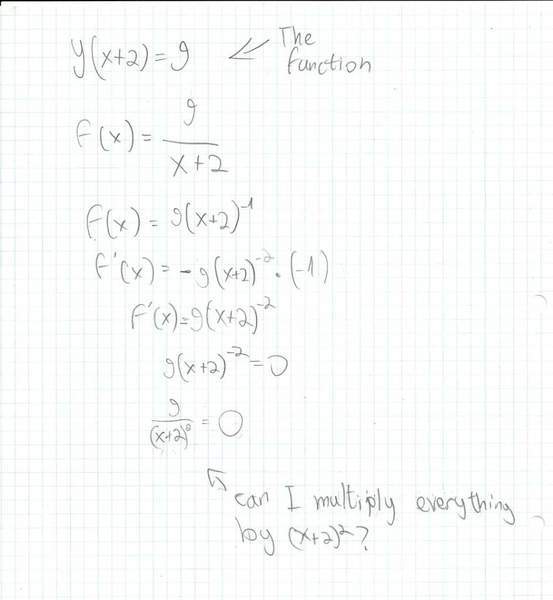 y(x+2)=9
The
function
f(x) = 9/(x+2)
f(x) = 9(x+2)^-1
f'(x) = -9(x+2)^-2 · (-1)
f'(x)=9(x+2)^-2
9(x+2)^-2=0
9/(x+2)^2 = 0
can I multiply everything
by (x+2)^2?